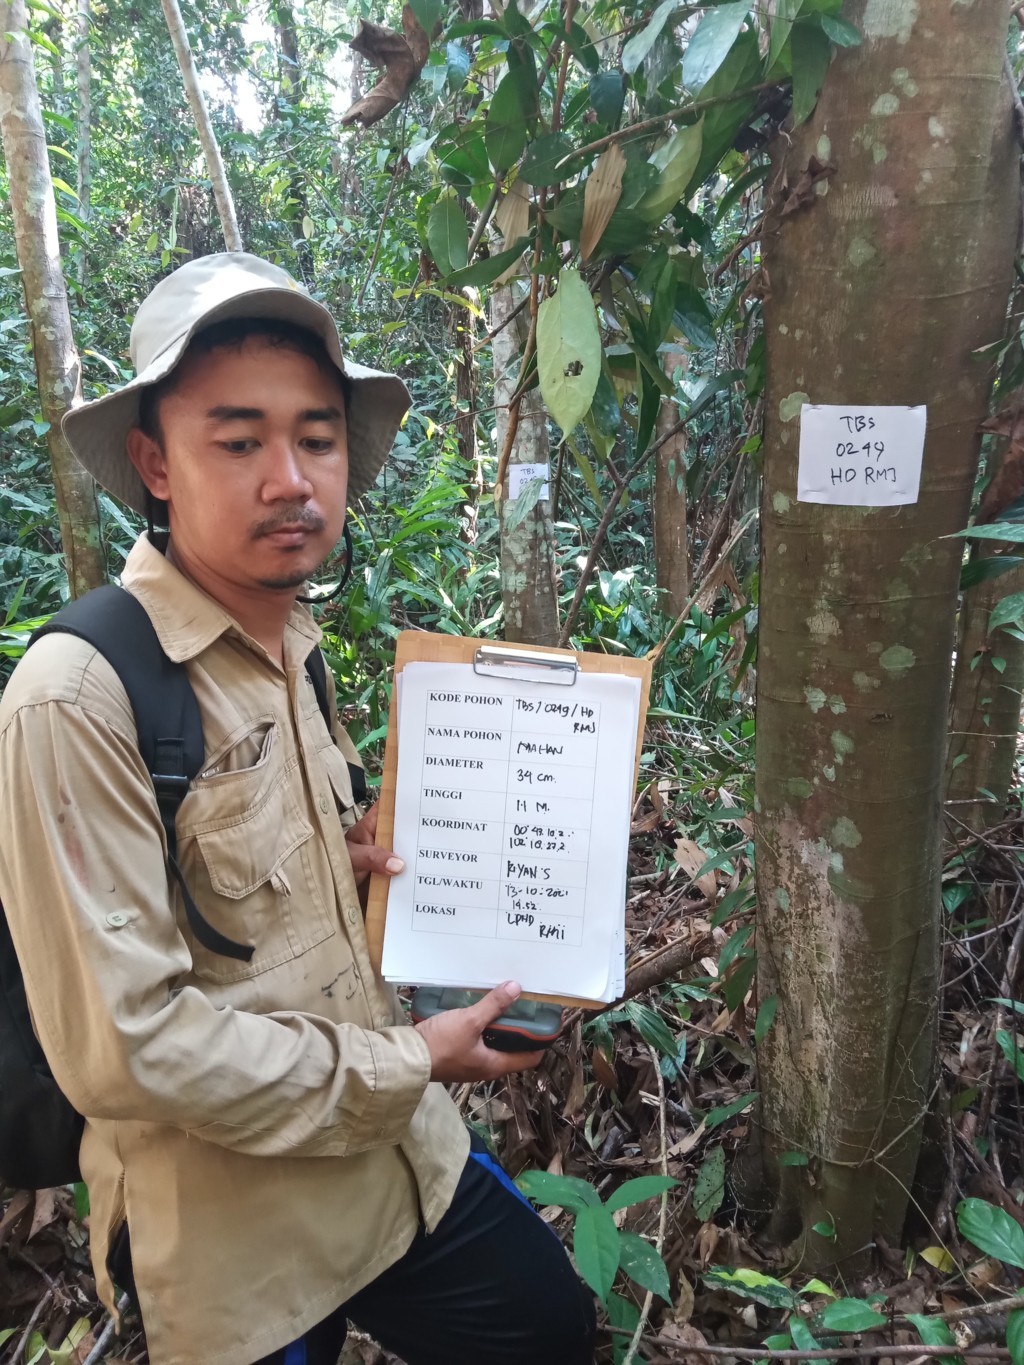 TBS
0249
HD RMJ
TBS
KODE POHON TBS/0249/HD
RMJ
NAMA POHON MAHAN
DIAMETER 34 cm.
TINGGI 11 M.
KOORDINAT 00° 
102°
SURVEYOR RIYAN'S
TGL/WAKTU 13-10-2021
14.52
LOKASI LPHD